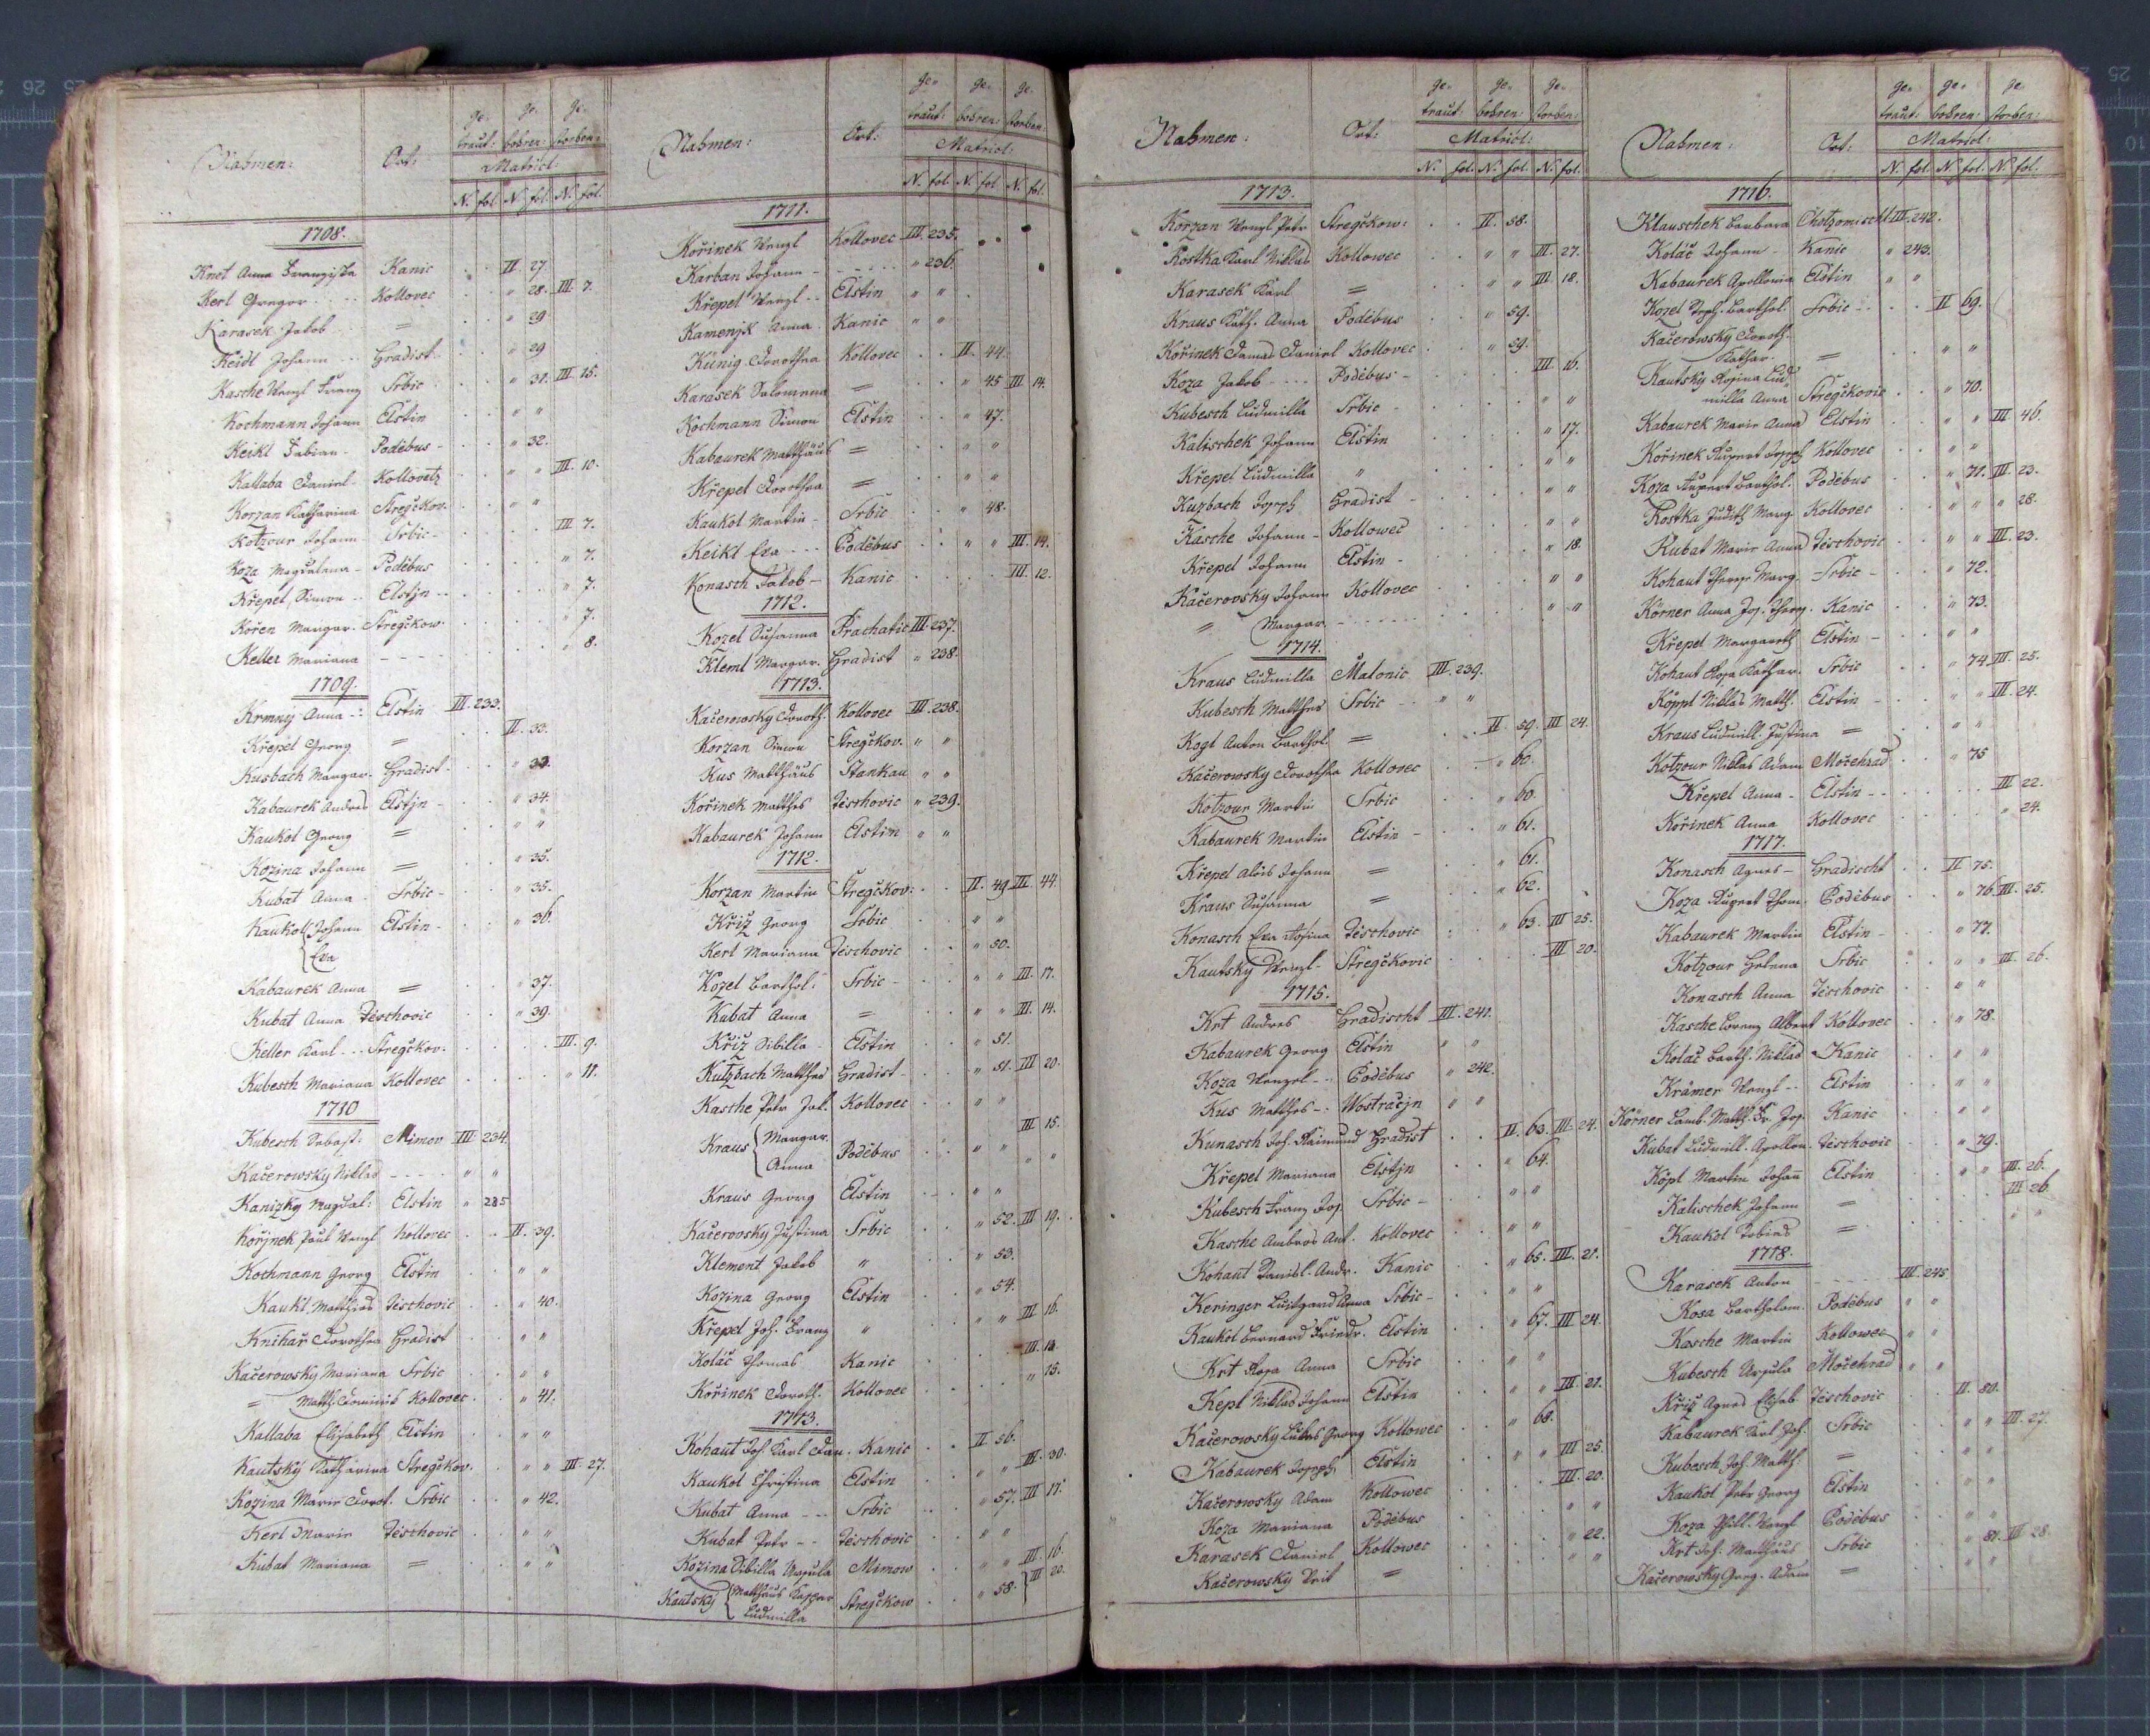 Nahmen: Ort: ge- traut: ge- bohren: ge- storben:
Matricl:
N. fol. N. fol. N. fol.
1708.
Knet Anna Franziska Kanic . . II. 27.
Kerl Gregor Kollovec . . " 28. III. 7.
Karasek Jakob = . . " 29
Keidl Johann Gradist . . " 29
Kasche Wenzl Franz Srbic . . " 31. III. 15.
Kochmann Johann Elstin . . " "
Keikl Fabian - Poděbus - . . " 32.
Kallaba Daniel - Kollovetz . . " " III. 10.
Korzan Katharina Stregčkov. . . " "
Kotzour Johann - Srbic - . . . . III. 7.
Koza Magdalena - Poděbus . . . . " 7.
Křepel Simon - Elstjn - . . . . " 7.
Kořen Margar. Stregčkow. . . . . " 7.
Keller Mariana - - - . . . . " 8.
1709.
Krmný Anna - Elstin III. 233.
Křepel Georg = . . II. 33.
Kusbach Margar. Gradist - . . " 33.
Kabaurek Andreas Elstjn - . . " 34.
Kaukol Georg = . . " "
Kozina Johann = . . " 35.
Kubat Anna - Srbic - . . " 35.
Kaukol { Johann Elstin - . . " 36.
Eva
Kabaurek Anna = . . " 37.
Kubat Anna Těschovic . . " 39.
Keller Karl - - Stregčkov. . . . . III. 9.
Kubesch Mariana Kollovec . . . . " 11.
1710
Kubesch Sebast: Mimov III. 234.
Kačerowsky Niklas - - - " "
Kanizky Magdal: Elstin " 235
Kořjnek Paul Wenzl Kollovec . . II. 39.
Kochmann Georg Elstin . . " "
Kaukl Matthias Těschovic . . " 40.
Knihař Dorothea Gradist . . " "
Kačerowsky Mariana Srbic . . " "
= Matth. Dominik Kollovec . . " 41.
Kallaba Elisabeth Elstin . . " "
Kautský Katharina Stregčkov. . . " " III. 27.
Kozina Marie Dorot. Srbic . . " 42.
Kerl Marie Těschovic . . " "
Kubat Mariana = . . " "
Nahmen: Ort: ge- traut: ge- bohren: ge- storben:
Matricl:
N. fol. N. fol. N. fol.
1711.
Kořinek Wenzl Kollovec III. 235.
Karban Johann - - - - " 236.
Křepel Wenzl - - Elstin " "
Kamenjk Anna Kanic " "
Künig Dorothea Kollovec . . II. 44.
Karasek Salomena = . . " 45 III. 14.
Kochmann Simon Elstin . . " 47.
Kabaurek Matthäus = . . " "
Křepel Dorothea = . . " "
Kaukol Martin - Srbic . . " 48.
Keikl Eva - - - Poděbus . . " " III. 14.
Konasch Jakob - Kanic . . . . III. 12.
1712.
Kozel Susanna Prachatic III. 237.
Kleml Margar. Gradist " 238.
1713.
Kačerowsky Doroth. Kollovec III. 238.
Korzan Simon Stregčkov. " "
Kus Matthäus Stankau " "
Kořinek Matthes Těschovic " 239.
Kabaurek Johann Elstin " "
1712.
Korzan Martin Stregčkov: . . II. 49 III. 44.
Křiž Georg Srbic . . " "
Kerl Mariana Těschovic . . " 50.
Kozel Barthol: Srbic - . . " " III. 17.
Kubat Anna = . . " " III. 14.
Křiž Sibilla - Elstin . . " 51.
Kutzbach Matthes Gradist - . . " 51. III 20.
Kasche Petr Jak. Kollovec . . " "
Kraus { Margar. Poděbus . . " " III 15.
Anna " "
Kraus Georg Elstin . . " "
Kačerovsky Justina Srbic . . " 52. III. 19.
Klement Jakob " . . " 53.
Kozina Georg Elstin . . " 54.
Křepel Joh. Franz " . . " " III. 16.
Koláč Thomas Kanic . . . . III. 14.
Kořinek Doroth. Kollovec . . . . " 15.
1713.
Kohaut Joh. Karl Dan. Kanic . . II 56.
Kaukol Christina Elstin . . " " III. 30.
Kubat Anna - - Srbic . . " 57. III 17.
Kubat Petr - - Těschovic . . " "
Kozina Sibilla Ursula Mimow . . " " III. 16.
Kautský { Matthäus Kaspar Stregčkow . . " 58. } III 20.
Ludmilla
Nahmen: Ort: ge- traut: ge- bohren: ge- storben:
Matricl:
N. fol. N. fol. N. fol.
1713.
Korzan Wenzl Petr Stregčkow: . . II. 58.
Kostka Karl Niklas Kollowec . . " " III. 27.
Karasek Karl = . . " " III 18.
Kraus Kath. Anna Poděbus . . " 59.
Kořinek Damas Daniel Kollovec . . " 59.
Koza Jakob - - - Poděbus - . . . . III. 16.
Kubesch Ludmilla Srbic - . . . . " "
Kalischek Johann Elstin . . . . " 17.
Křepel Ludmilla " . . . . " "
Kuzbach Joseph Gradist - . . . . " "
Kasche Johann - Kollowec . . . . " "
Křepel Johann Elstin - . . . . " 18.
Kačerovsky Johann Kollovec . . . . " "
= Margar. - - - - . . " "
1714.
Kraus Ludmilla Malonic III. 239.
Kubesch Matthes Srbic - " "
Kogl Anton Barthol. = . . II. 59. III 24.
Kačerowsky Dorothea Kollovec . . " 60.
Kotzour Martin Srbic . . " 60.
Kabaurek Martin Elstin - . . " 61.
Křepel Alois Johann = . . " 61.
Kraus Susanna = . . " 62.
Konasch Eva Rosina Těschovic . . " 63. III 25.
Kautsky Wenzl - Stregčkovic . . . . III 20.
1715.
Krt Andreas Gradischt III. 241.
Kabaurek Georg Elstin " "
Koza Wenzel - - Poděbus " 242.
Kus Matthes - : Wostračjn " "
Kunasch Joh. Raimund Gradist . . II. 63. III. 24.
Křepel Mariana Elstjn . . " 64.
Kubesch Franz Jos. Srbic - . . " "
Kasche Ambros Ant. Kollovec . . " "
Kohaut Daniel. Andr. Kanic . . " 65. III. 21.
Keringer Luitgard Anna Srbic - . . " "
Kaukol Bernard Friedr. Elstin . . " 67. III 24.
Krt Rosa Anna Srbic . . " "
Kepl Niklas Johann Elstin . . " " III. 21.
Kačerowsky Lukas Georg Kollowec . . " 68.
Kabaurek Joseph Elstin . . " " III 25.
Kačerowsky Adam Kollowec . . . . III. 20.
Koza Mariana Poděbus . . . . " "
Karasek Daniel Kollowec . . . . " 22.
Kačerowsky Veit = . . . . " "
Nahmen: Ort: ge- traut: ge- bohren: ge- storben:
Matricl:
N. fol. N. fol. N. fol.
1716.
Klauschek Barbara Chotzomischl III. 242.
Koláč Johann - Kanic " 243.
Kabaurek Apollonia Elstin " "
Kozel Joseph. Barthol. Srbic - . . II 69.
Kačerowsky Doroth.
Kathar. = . . " "
Kautsky Rosina Lud-
milla Anna Stregčkovic . . " 70.
Kabaurek Marie Anna Elstin . . " " III 46.
Kořinek Rupert Joseph Kollovec . . " "
Koza Rupert Barthol. Poděbus . . " 71. III. 23.
Kostka Judith Marg. Kollovec . . " " " 28.
Kubat Marie Anna Těschovic . . " " III. 23.
Kohaut Theresie Marg. Srbic - . . " 72.
Körner Anna Jos. Theres. Kanic . . " 73.
Křepel Margareth Elstin - . . " "
Kohaut Rosa Kathar. Srbic . . " 74 III. 25.
Köppl Niklas Matth. Elstin - . . " " III. 24.
Kraus Ludmill. Justina = . . " "
Kotzour Niklas Adam Močehrad . . " 75
Křepel Anna - Elstin - - . . . . III 22.
Kořinek Anna Kollovec . . . . " 24.
1717.
Konasch Agnes - Gradischt . . II 75.
Koza Rupert Thom. Poděbus . . " 76. III. 25.
Kabaurek Martin Elstin - . . " 77.
Kotzour Helena Srbic . . " " III. 26.
Konasch Anna Těschovic . . " "
Kasche Lorenz Albert Kollovec . . " 78.
Kolač Barth. Niklas Kanic . . " "
Krämer Wenzl - - Elstin . . " "
Körner Lamb. Matth. Fr. Jos. Kanic . . " "
Kubat Ludmill. Apollon. Těschovic . . " 79.
Köpl Martin Johann Elstin . . " " III. 26.
Kalischek Johann = . . . . III 26
Kaukol Tobias = . . . . " "
1718.
Karasek Anton - - - - III. 245
Kosa Bartholom. Poděbus " "
Kasche Martin Kollowec " "
Kubesch Ursula Močehrad " "
Křiž Agnes Elisab. Těschovic . . II. 80.
Kabaurek Karl Joh. Srbic . . " " III. 27.
Kubesch Joh. Matth. = . . " "
Kaukol Petr Georg Elstin . . " "
Koza Phill. Wenzl Poděbus . . " "
Krt Joh. Matthäus Srbic . . " 81. III 28.
Kačerowsky Greg. Adam = . . " "